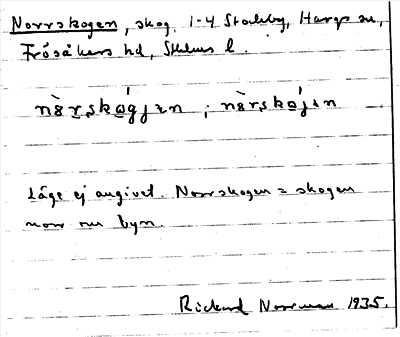 Norrskogen, skog, 1-4 Stockby, Hargs sn,
Frösåkers hd, Sthlms l.
nòrskógjen ; nòrskójen
Läge ej angivet. Norrskogen = skogen
norr om byn.
Rickard Norrman 1935.